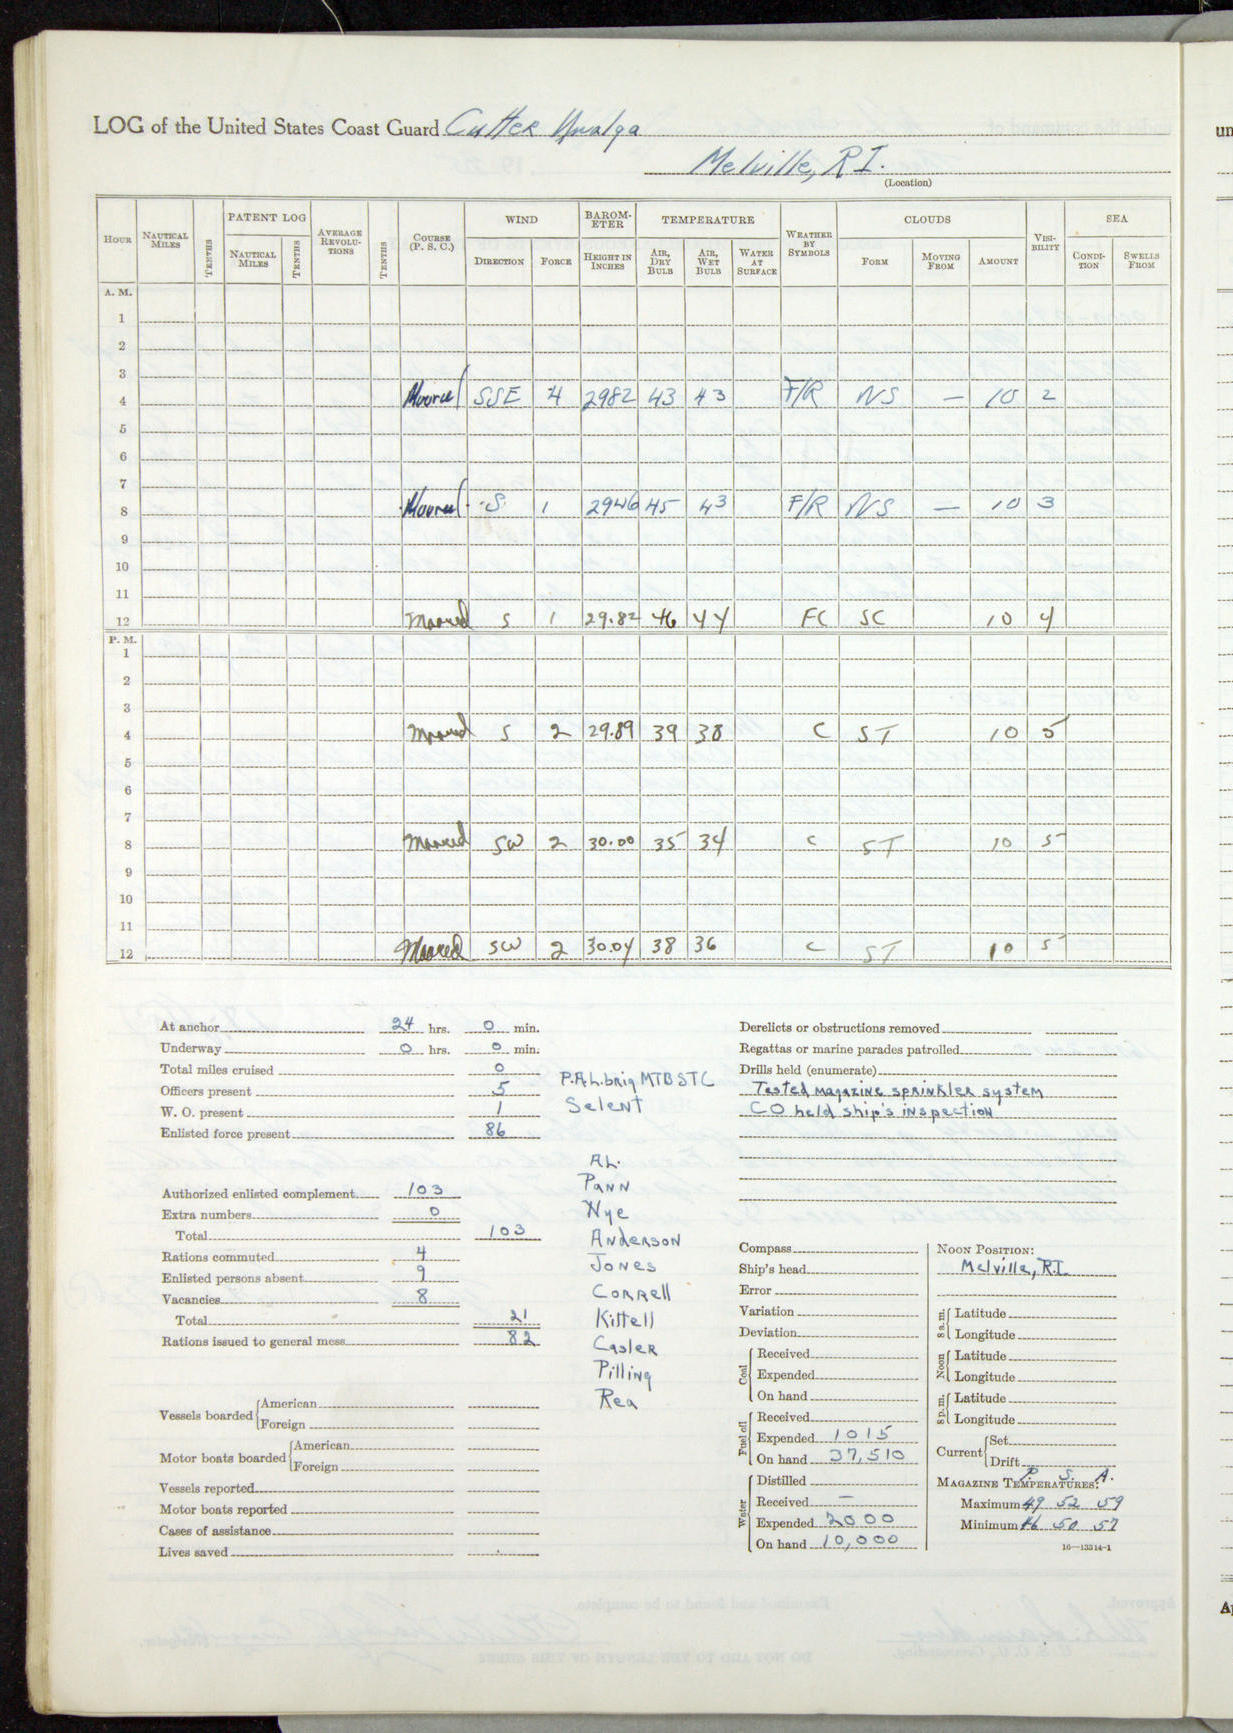 LOG of the United States Coast Guard Cutter Unalga
Melville, R.I.
(Location)
HOUR NAUTICAL MILES TENTHS PATENT LOG NAUTICAL MILES TENTHS AVERAGE REVOLU-TIONS TENTHS COURSE (P. S. C.) WIND DIRECTION FORCE BAROM-ETER HEIGHT IN INCHES TEMPERATURE AIR, DRY BULB AIR, WET BULB WATER AT SURFACE WEATHER BY SYMBOLS CLOUDS FORM MOVING FROM AMOUNT VISI-BILITY SEA CONDI-TION SWELLS FROM
A. M.
1
2
3
4 Moored SSE 4 2982 43 43 F/R NS — 10 2
5
6
7
8 Moored S 1 2946 45 43 F/R NS — 10 3
9
10
11
12 Moored S 1 29.82 46 44 FC SC 10 4
P. M.
1
2
3
4 Moored S 2 29.89 39 38 C ST 10 5
5
6
7
8 Moored SW 2 30.00 35 34 C ST 10 5
9
10
11
12 Moored SW 2 30.04 38 36 C ST 10 5
At anchor 24 hrs. 0 min.
Underway 0 hrs. 0 min.
Total miles cruised 0
Officers present 5
W. O. present 1
Enlisted force present 86
P.A.L. brig MTBSTC
Selent
Authorized enlisted complement 103
Extra numbers 0
Total 103
Rations commuted 4
Enlisted persons absent 9
Vacancies 8
Total 21
Rations issued to general mess 82
A.L.
Pann
Nye
Anderson
Jones
Correll
Kittell
Casler
Pilling
Rea
Vessels boarded American
Foreign
Motor boats boarded American
Foreign
Vessels reported
Motor boats reported
Cases of assistance
Lives saved
Derelicts or obstructions removed
Regattas or marine parades patrolled
Drills held (enumerate)
Tested magazine sprinkler system
CO held ship's inspection
Compass
Ship's head
Error
Variation
Deviation
Coal Received
Expended
On hand
Fuel oil Received
Expended 1015
On hand 37,510
Water Distilled
Received —
Expended 2000
On hand 10,000
NOON POSITION:
Melville, R.I.
8 a. m. Latitude
Longitude
Noon Latitude
Longitude
8 p. m. Latitude
Longitude
Current Set
Drift
P. S. A.
MAGAZINE TEMPERATURES:
Maximum 49 52 59
Minimum 46 50 57
16—13314-1